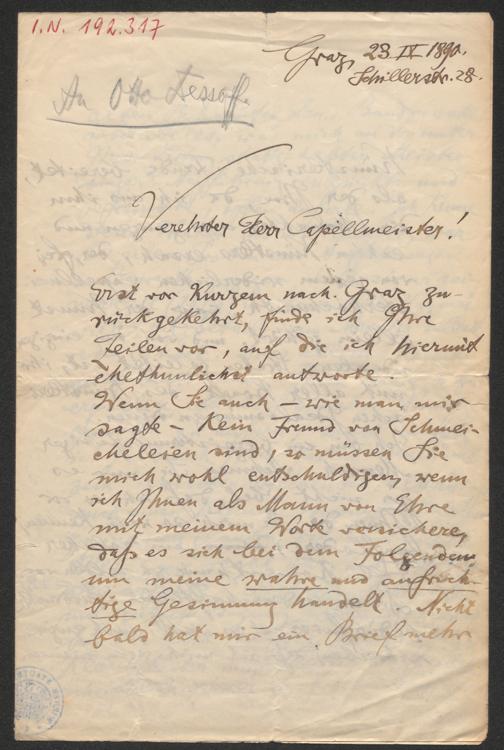 I.N. 192.317
Graz, 23 IV 1890.
Schillerstr. 28.
An Otto Dessoff.
Verehrter Herr Capellmeister!
Erst vor Kurzem nach Graz zu-
rückgekehrt, finde ich Ihre
Zeilen vor, auf die ich hiermit
ehethunlichst antworte.
Wenn Sie auch – wie man mir
sagte – kein Freund von Schmei-
cheleien sind, so müssen Sie
mich wohl entschuldigen, wenn
ich Ihnen als Mann von Ehre
mit meinem Worte versichere,
daß es sich bei dem Folgenden
um meine wahre und aufrich-
tige Gesinnung handelt. Nicht
bald hat mir ein Brief mehr